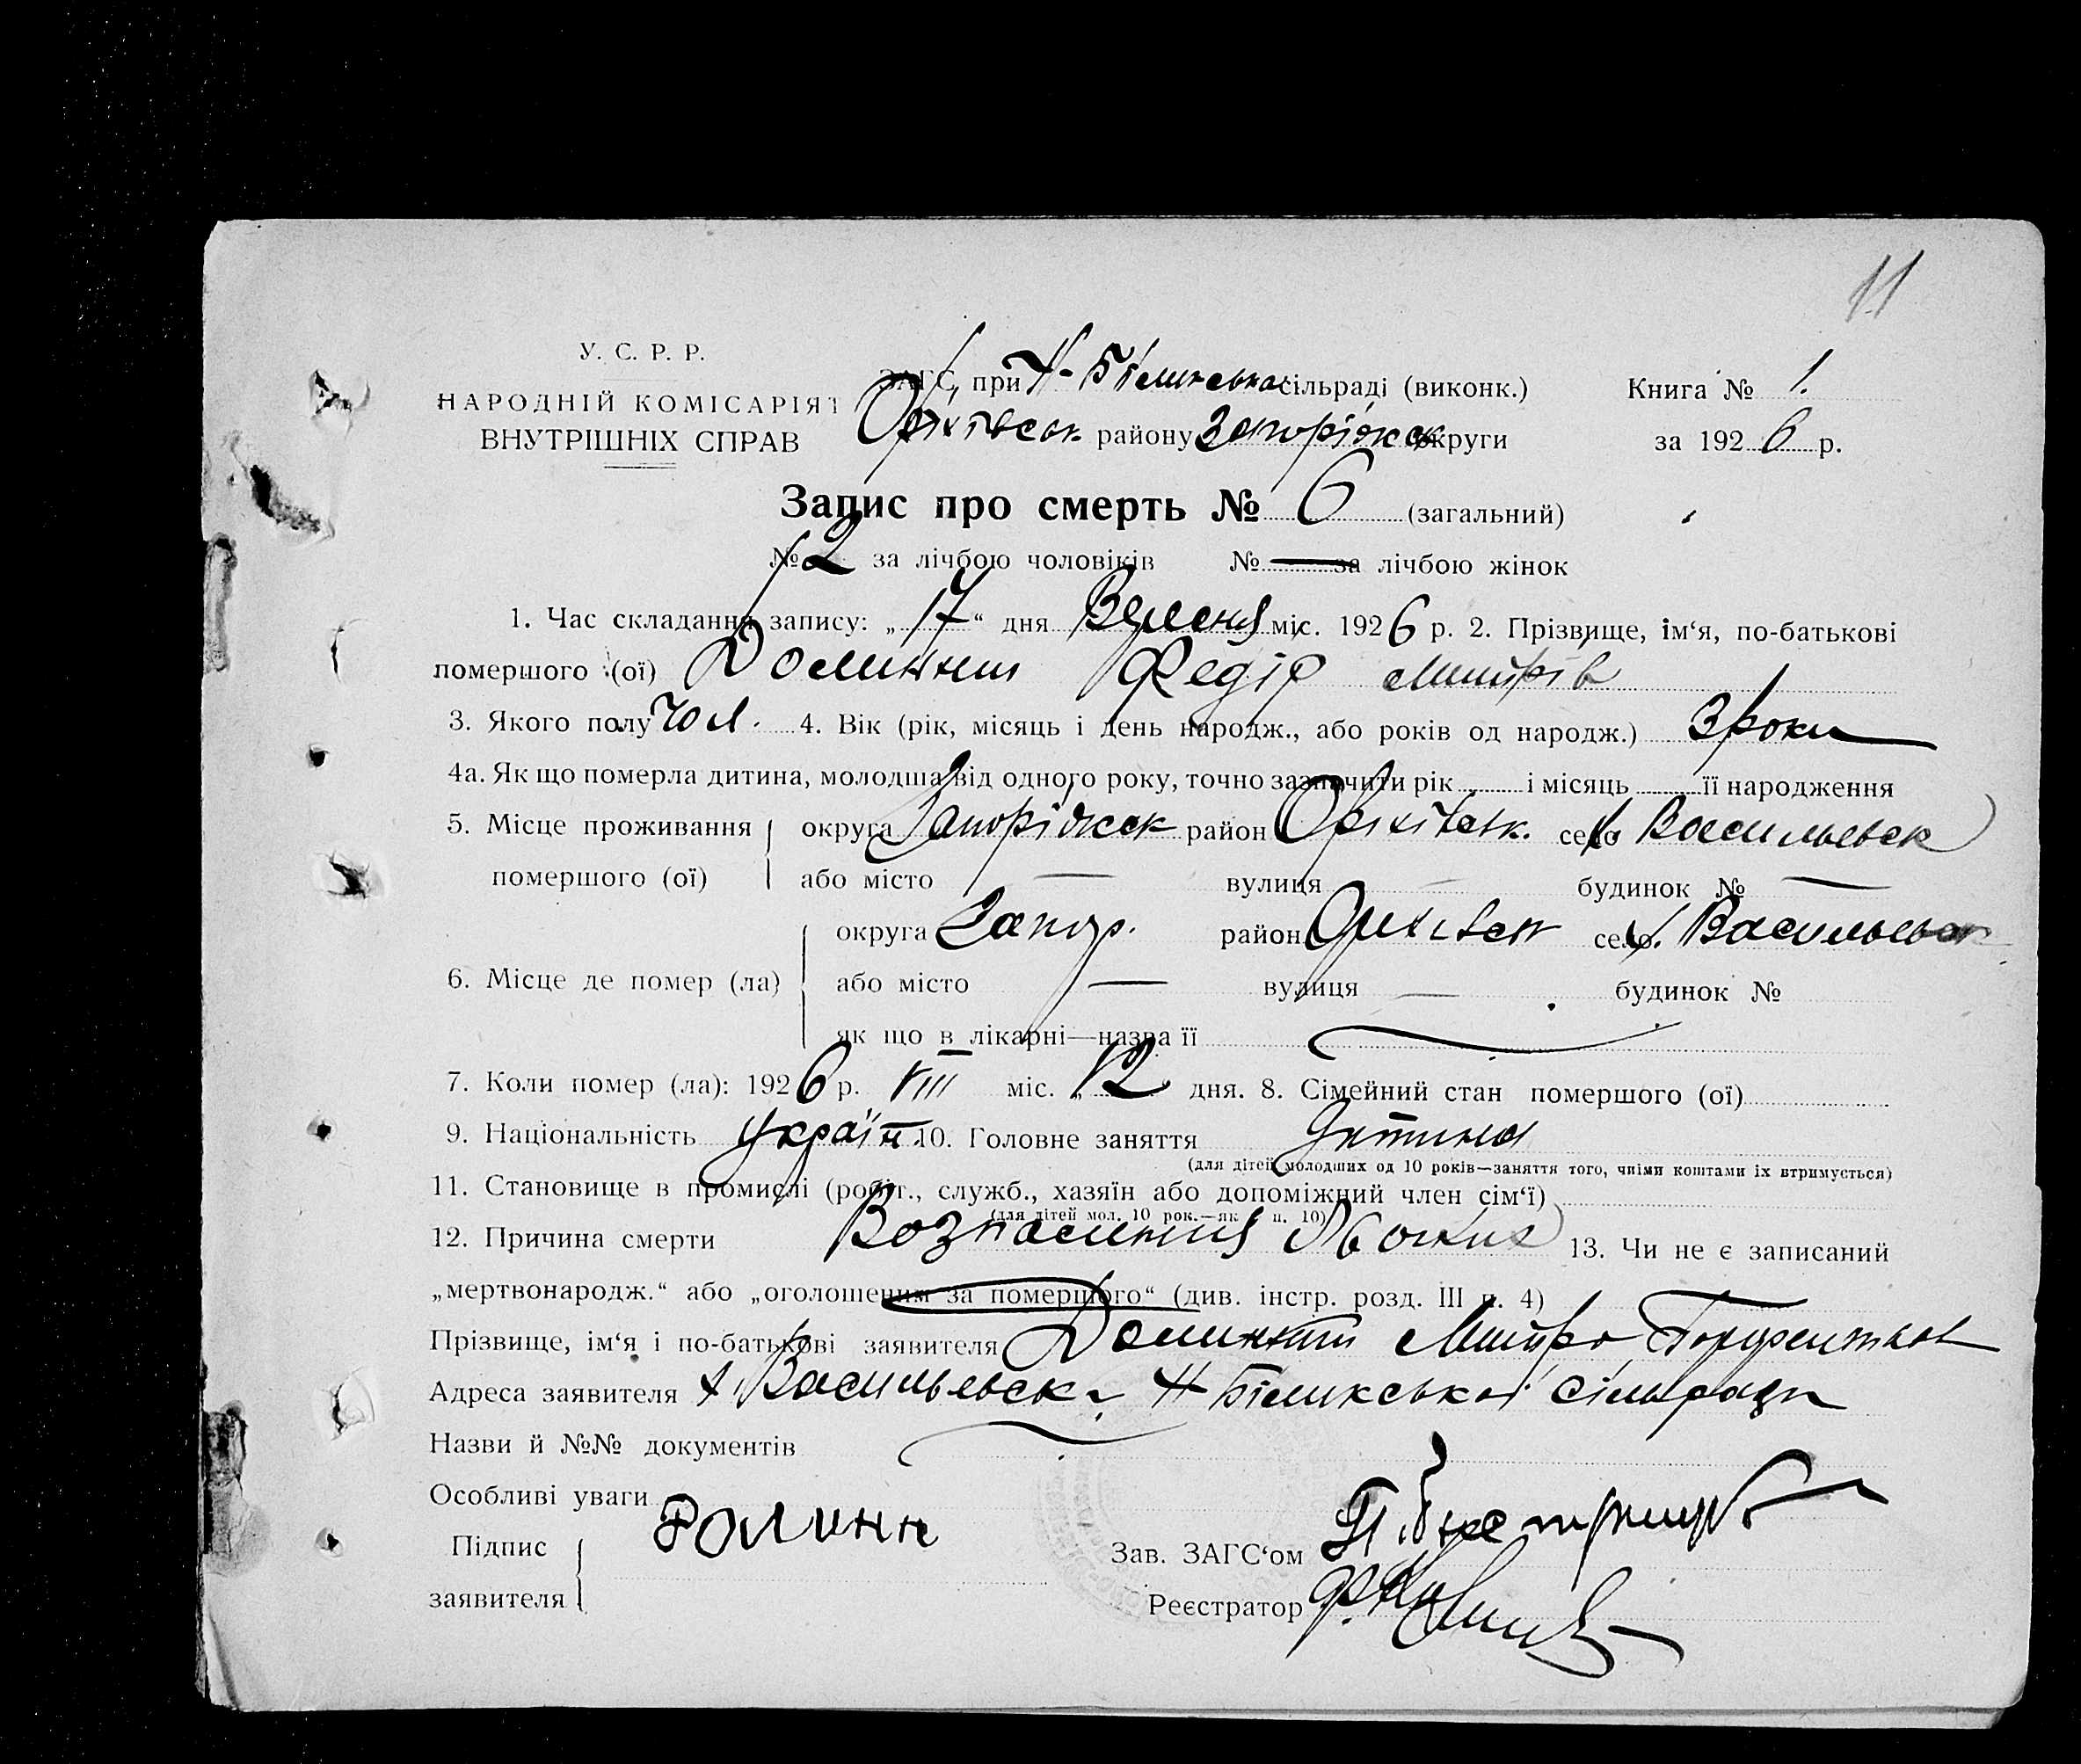 11
У. С. Р. Р.
НАРОДНІЙ КОМІСАРІЯТ
ВНУТРІШНІХ СПРАВ
ЗАГС при Н-Білинської сільраді (виконк.)
Оріхівськ району Запоріжск округи
Книга № 1.
за 1926 р.
Запис про смерть № 6 (загальний)
№ 2 за лічбою чоловіків № — за лічбою жінок
1. Час складання запису: „17“ дня Вересня міс. 1926 р. 2. Прізвище, ім‘я, по-батькові
помершого (ої) Долинний Федір
3. Якого полу чол. 4. Вік (рік, місяць і день народж., або років од народж.) 3 роки
4а. Як що померла дитина, молодша від одного року, точно зазначити рік і місяць її народження
5. Місце проживання помершого (ої) округа Запоріжск район Оріхівськ. село х Васильевск
або місто — вулиця — будинок № —
6. Місце де помер (ла) округа Запор. район село х. Васильевск
або місто — вулиця — будинок №
як що в лікарні—назва її
7. Коли помер (ла): 1926 р. VIII міс. „12“ дня. 8. Сімейний стан помершого (ої)
9. Національність україн. 10. Головне заняття Дитина
(для дітей молодших од 10 років—заняття того, чиїми коштами їх втримується)
11. Становище в промислі (робіт., служб., хазяїн або допоміжний член сім‘ї)
(для дітей мол. 10 рок.—як п. 10)
12. Причина смерти 13. Чи не є записаний
„мертвонародж.“ або „оголошеним за помершого“ (див. інстр. розд. III п. 4)
Прізвище, ім‘я і по-батькові заявителя Долинний
Адреса заявителя х. Васильевск Н Білинської сільради
Назви й №№ документів
Особливі уваги
Підпис заявителя
Зав. ЗАГС‘ом
Реєстратор